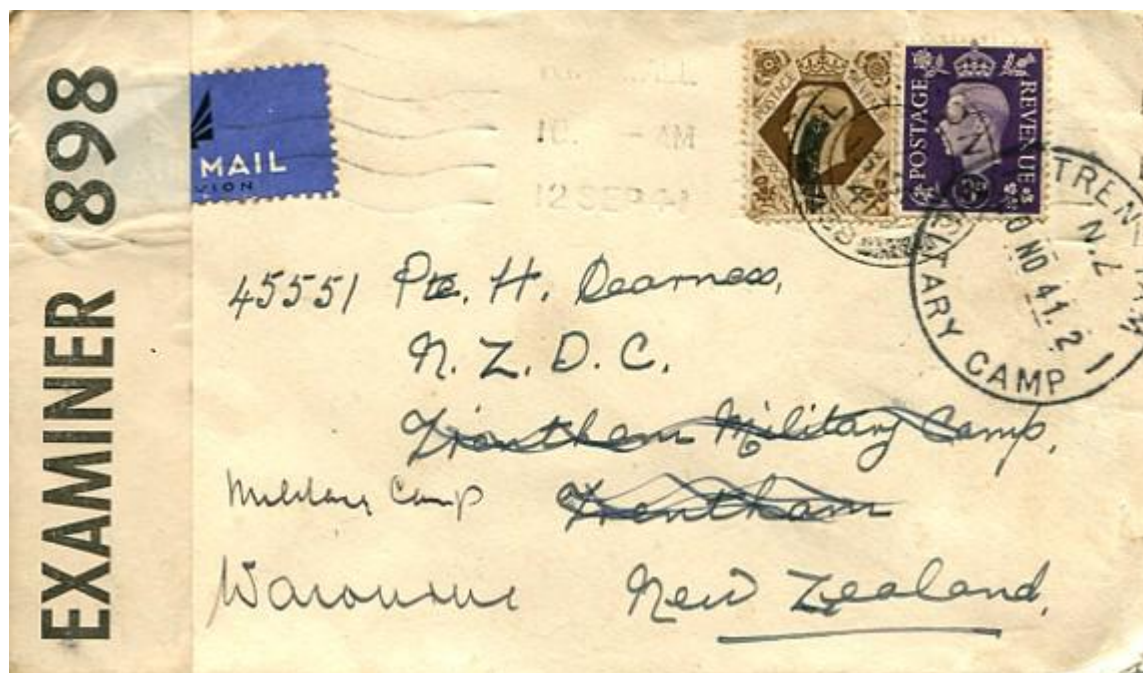 EXAMINER 898
MAIL
VION
10. - AM
12 SEP
POSTAGE REVENUE
POSTAGE REVENUE
TREN
N.Z
NO 41.2
ITARY CAMP
45551 Pte. H. Dearness,
N.Z.D.C.
Trentham Military Camp,
Military Camp Trentham
New Zealand.